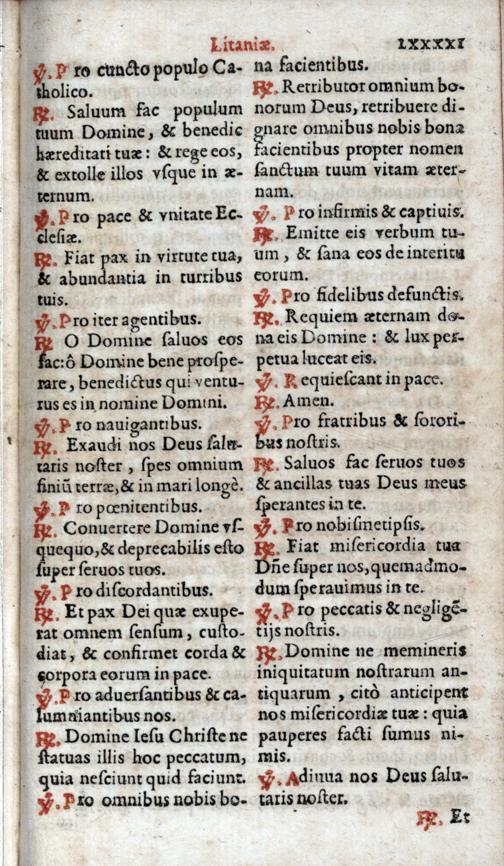 Litaniæ. LXXXXI
℣. Pro cuncto populo Ca-
tholico.
℟. Saluum fac populum
tuum Domine, & benedic
hæreditati tuæ: & rege eos,
& extolle illos vſque in æ-
ternum.
℣. Pro pace & vnitate Ec-
cleſiæ.
℟. Fiat pax in virtute tua,
& abundantia in turribus
tuis.
℣. Pro iter agentibus.
℟ O Domine ſaluos eos
fac: ô Domine bene proſpe-
rare, benedictus qui ventu-
rus es in nomine Domini.
℣. Pro nauigantibus.
℟. Exaudi nos Deus ſalu-
taris noſter, ſpes omnium
finiū terræ, & in mari longè.
℣. Pro pœnitentibus.
℟. Conuertere Domine vſ-
quequo, & deprecabilis eſto
ſuper ſeruos tuos.
℣. Pro diſcordantibus.
℟. Et pax Dei quæ exupe-
rat omnem ſenſum, cuſto-
diat, & confirmet corda &
corpora eorum in pace.
℣. Pro aduerſantibus & ca-
lumniantibus nos.
℟. Domine Ieſu Chriſte ne
ſtatuas illis hoc peccatum,
quia neſciunt quid faciunt.
℣. Pro omnibus nobis bo-
na facientibus.
℟. Retributor omnium bo-
norum Deus, retribuere di-
gnare omnibus nobis bona
facientibus propter nomen
ſanctum tuum vitam æter-
nam.
℣. Pro infirmis & captiuis.
℟. Emitte eis verbum tu-
um, & ſana eos de interitu
eorum.
℣. Pro fidelibus defunctis.
℟. Requiem æternam do-
na eis Domine: & lux per-
petua luceat eis.
℣. Requieſcant in pace.
℟. Amen.
℣. Pro fratribus & ſorori-
bus noſtris.
℟. Saluos fac ſeruos tuos
& ancillas tuas Deus meus
ſperantes in te.
℣. Pro nobiſmetipſis.
℟. Fiat miſericordia tua
Dñe ſuper nos, quemadmo-
dum ſperauimus in te.
℣. Pro peccatis & negligē-
tijs noſtris.
℟. Domine ne memineris
iniquitatum noſtrarum an-
tiquarum, citò anticipent
nos miſericordiæ tuæ: quia
pauperes facti ſumus ni-
mis.
℣. Adiuua nos Deus ſalu-
taris noſter.
℟. Et